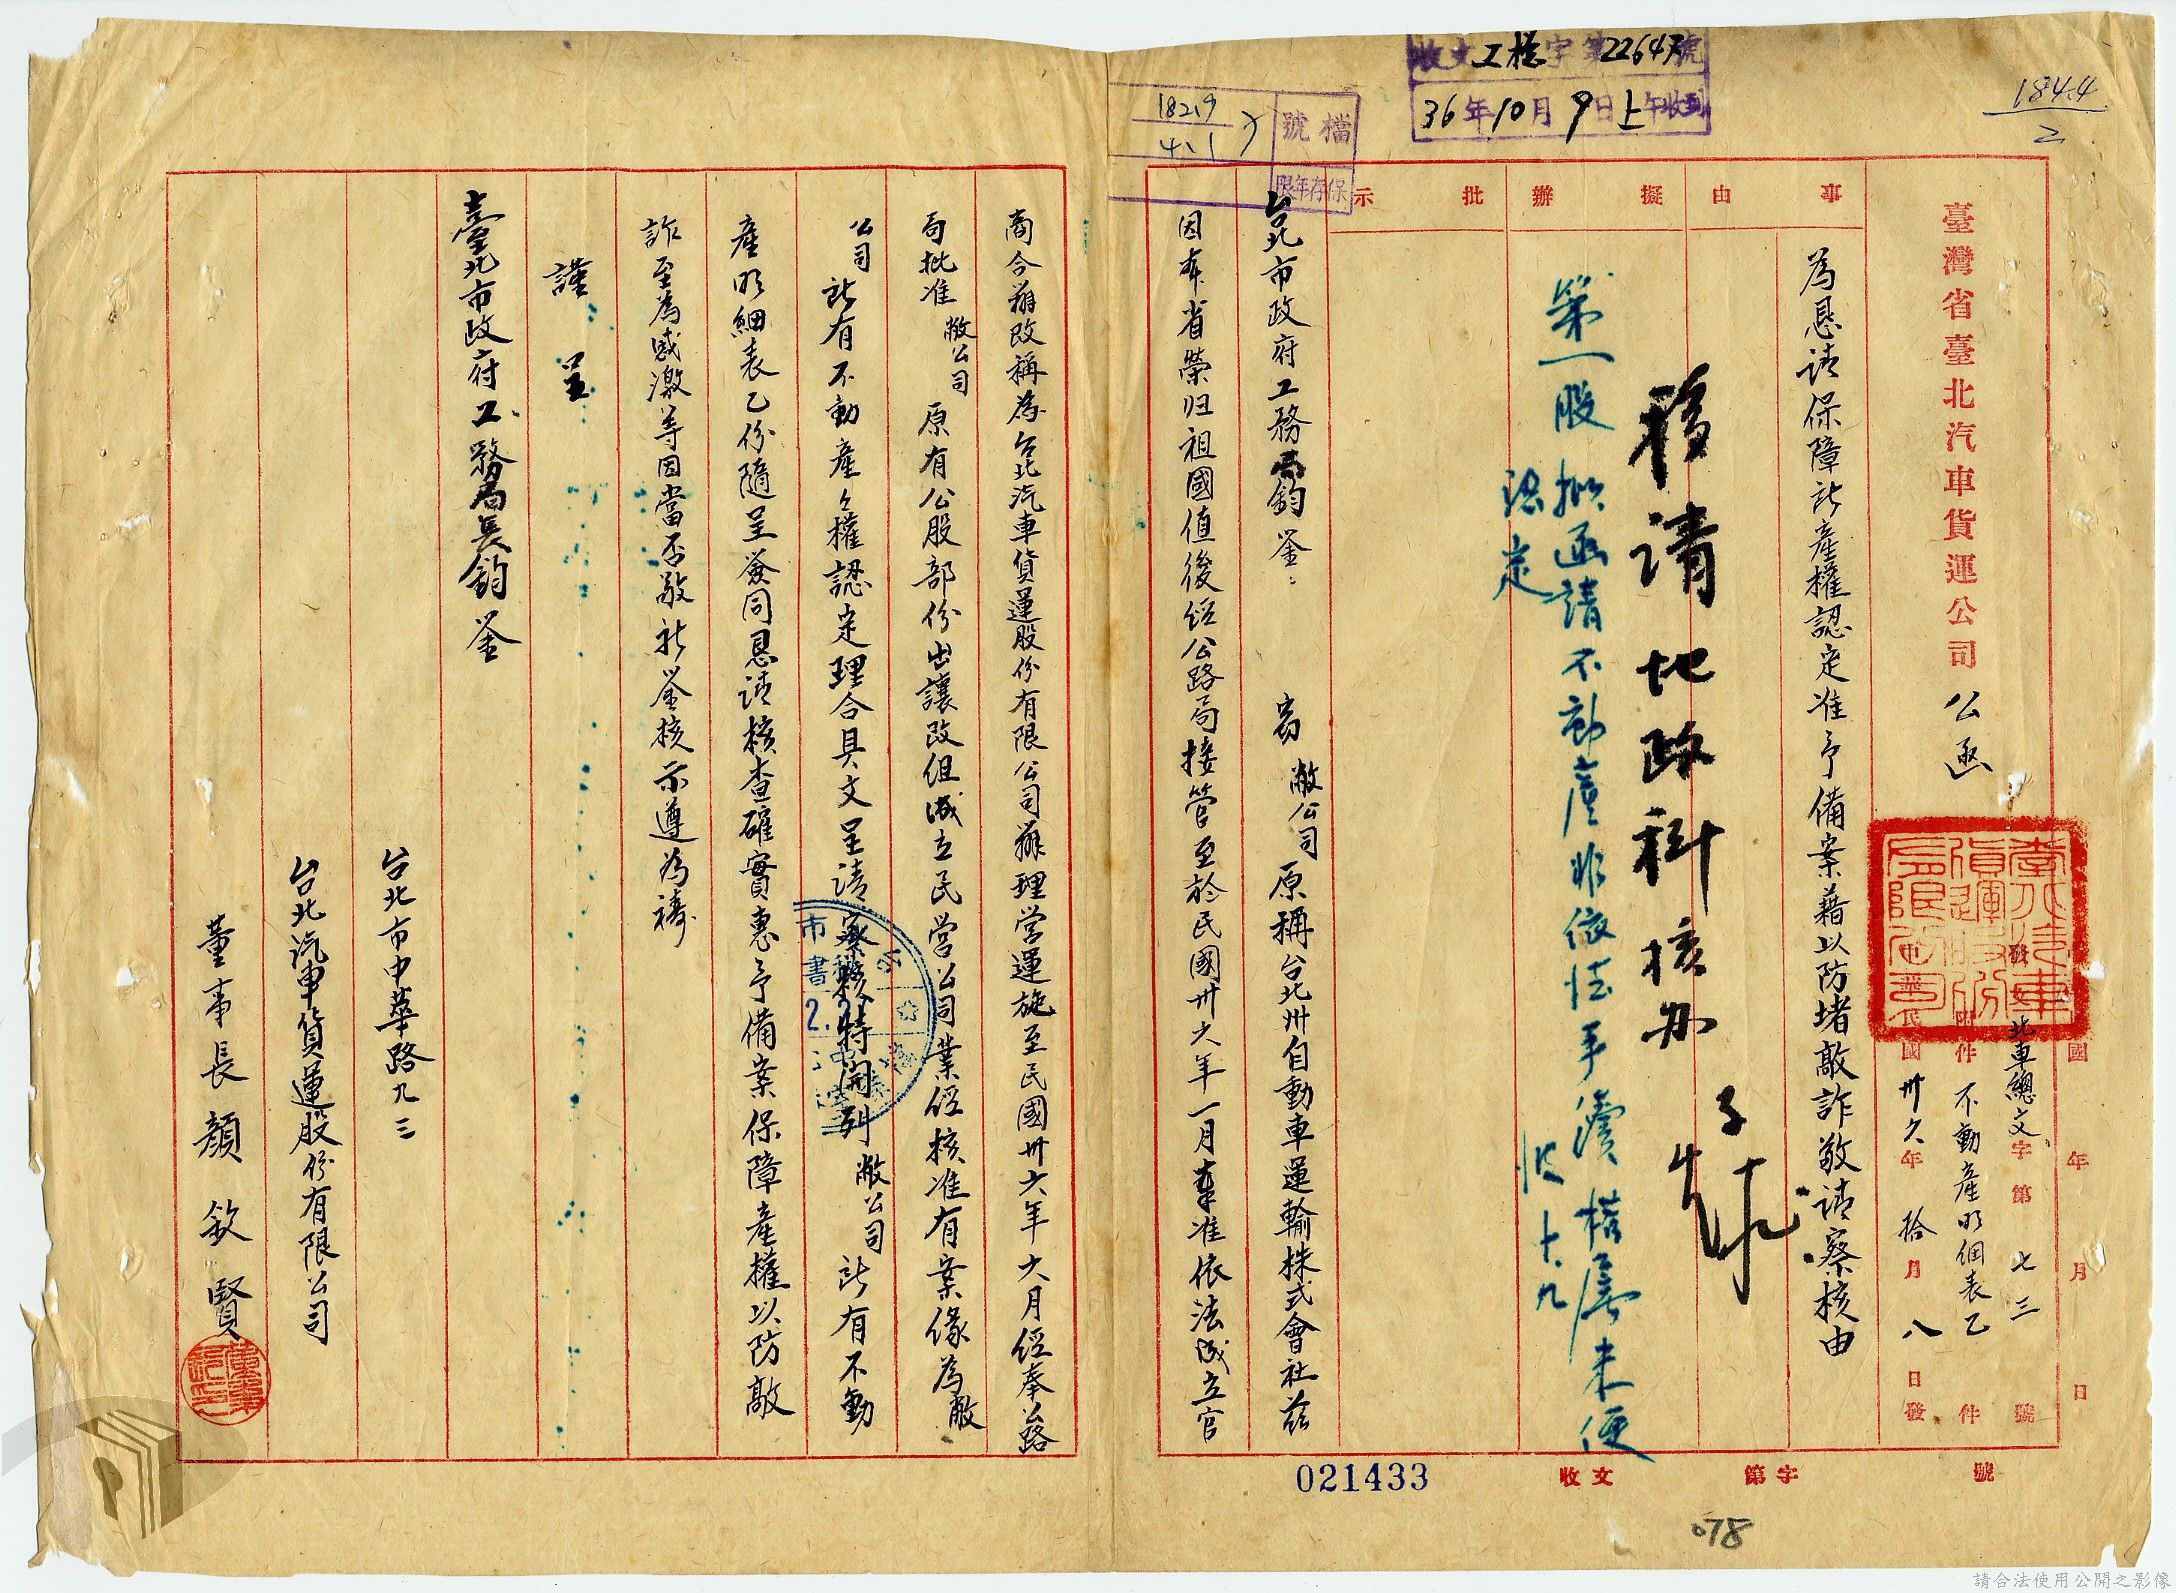 收文工檢字第22647號
36年10月9日上午收到
1844
2
檔號
18219
4.1
保存年限
臺灣省臺北汽車貨運公司 公函
北車總文字第七三號
附件 不動產明細表乙件
中華民國卅六年拾月八日發
國 年 月 日
事由
為恳請保障所產權認定准予備案藉以防堵敲詐敬請察核由
擬辦
移請地政科核办
第一股擬函請不動產非依法手續權屬未便
認定
十.九
批示
台北市政府工務局鈞鉴：竊敝公司原稱台北州自動車運輸株式會社茲
因本省榮归祖國值後經公路局接管至於民國卅六年一月奉准依法成立官
商合辦改稱為台北汽車貨運股份有限公司辦理営運施至民國卅六年六月經奉公路
局批准敝公司原有公股部份出讓改組成立民営公司業經核准有案緣為敝
公司所有不動產々權認定理合具文呈請察核特開列敝公司所有不動
產明細表乙份隨呈發同恳請核查確實惠予備案保障產權以防敲
詐至為感激等因當否敬祈鉴核示遵為禱
謹呈
臺北市政府工務局長鈞鉴
台北市中華路九三
台北汽車貨運股份有限公司
董事長顏欽賢
收文 字第 號
021433
078
請合法使用公開之影像